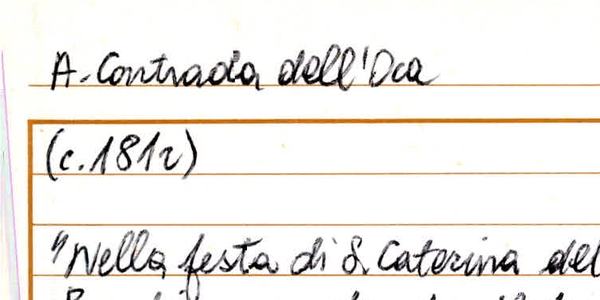 A. Contrada dell'Oca
(c. 1812)
"Nella festa di S. Caterina del